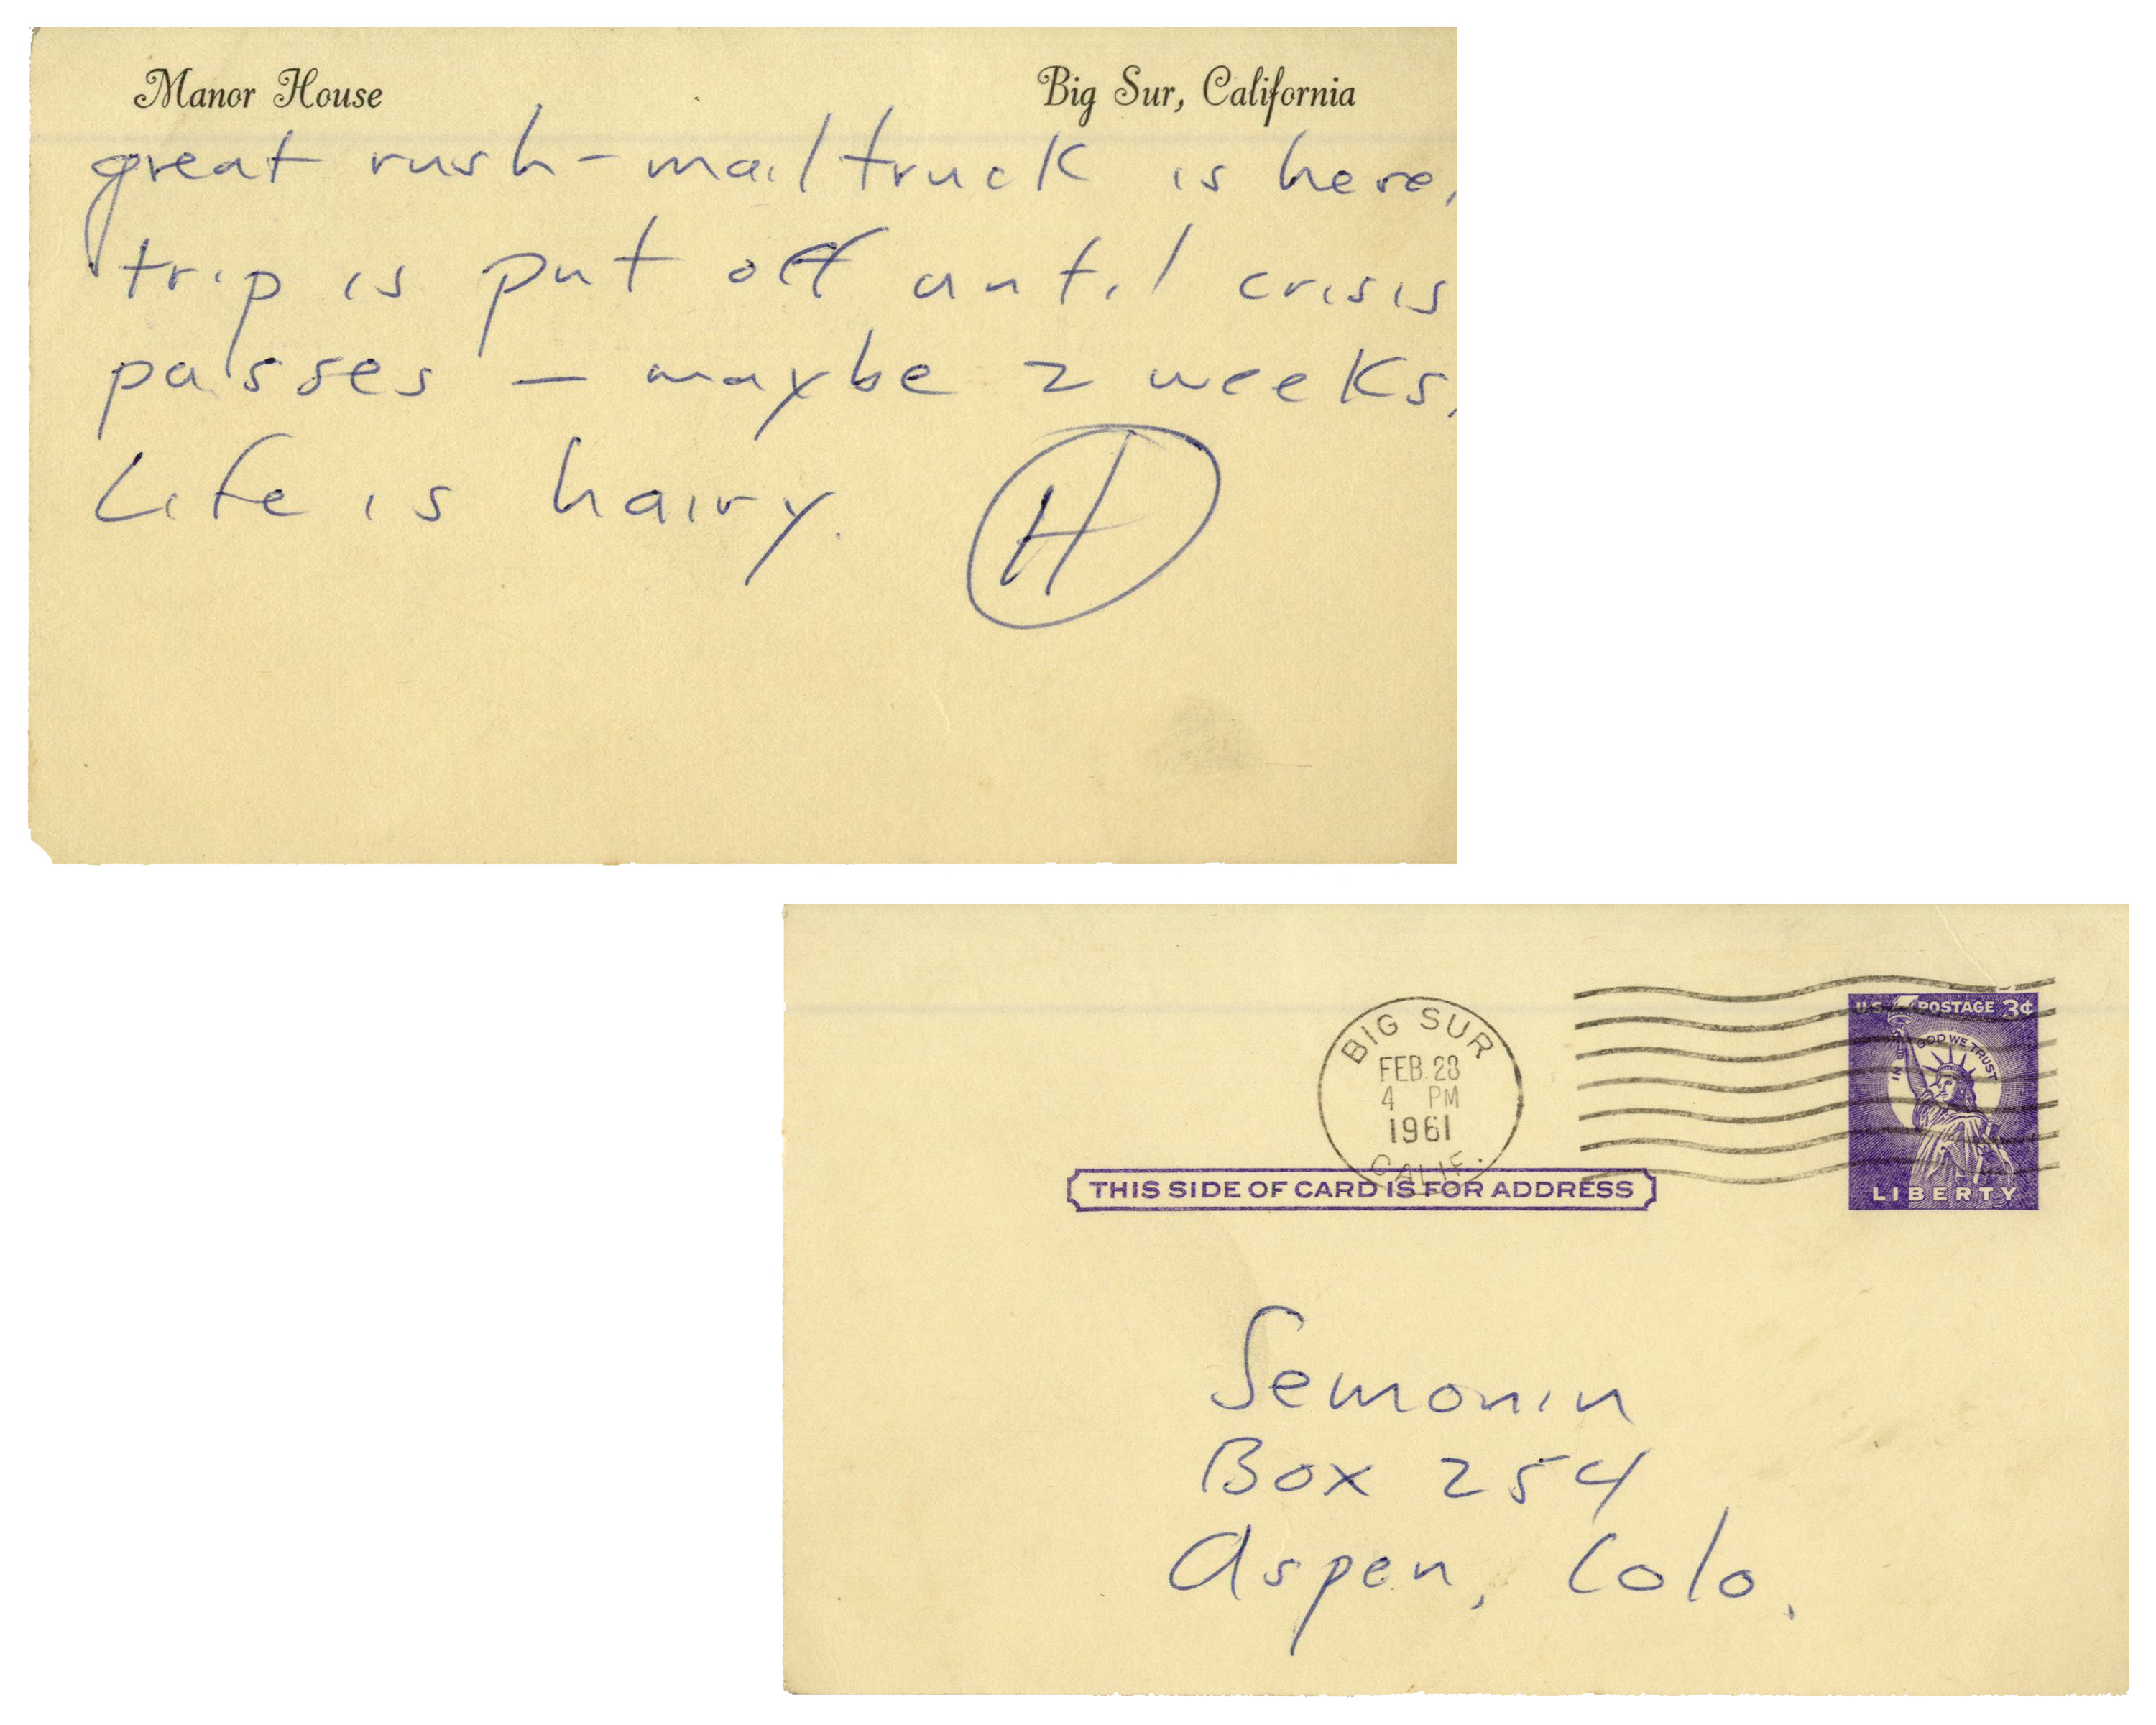 Manor House Big Sur, California
great rush - mail truck is here,
trip is put off until crisis
passes — maybe 2 weeks.
Life is hairy. H
BIG SUR
FEB 28
4 PM
1961
CALIF.
U.S. POSTAGE 3¢
IN GOD WE TRUST
LIBERTY
THIS SIDE OF CARD IS FOR ADDRESS
Semonin
Box 254
Aspen, Colo.